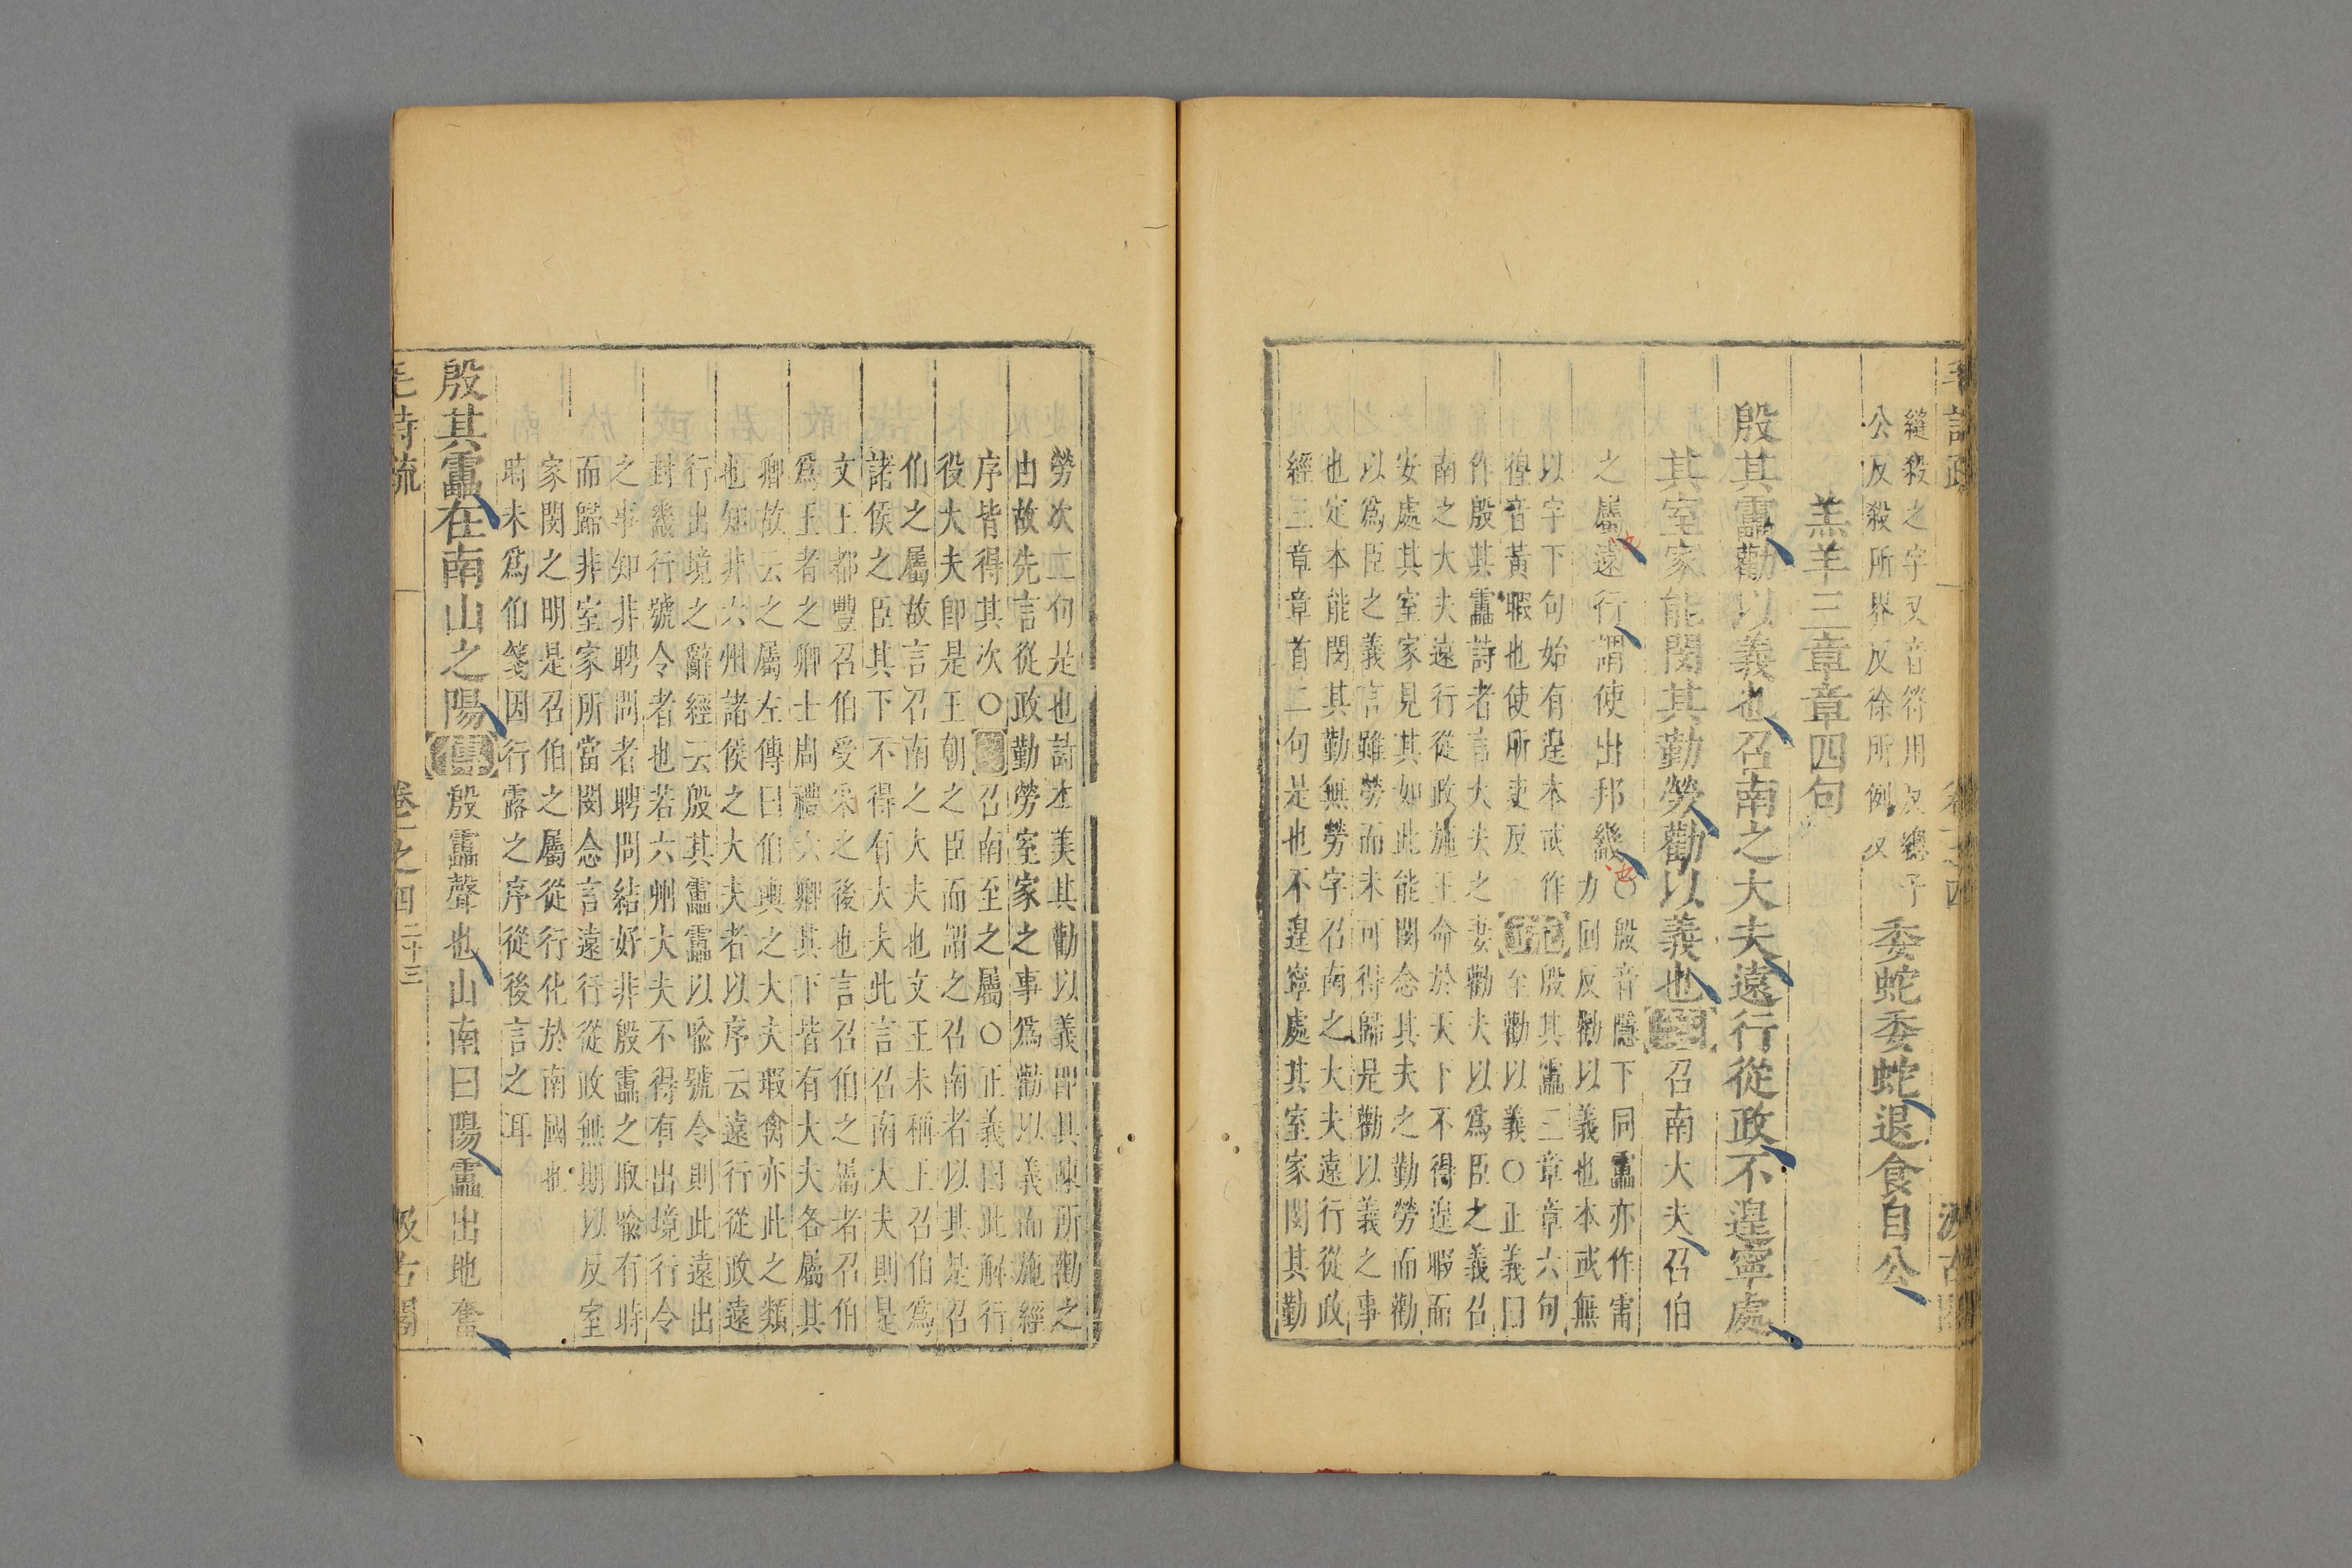 縫殺之字又音符用反縂子
公反殺所界反徐所例反
委蛇委蛇退食自公
羔羊三章章四句
殷其靁勸以義也召南之大夫遠行從政不遑寧處
其室家能閔其勤勞勸以義也
召南大夫召伯
之屬遠行謂使出邦畿
○殷音隱下同靁亦作雷
力回反勸以義也本或無
以字下句始有遑本或作
偟音黃暇也使所吏反
殷其靁三章章六句
至勸以義○正義曰
作殷其靁詩者言大夫之妻勸夫以爲臣之義召
南之大夫遠行從政施王命於天下不得遑暇而
安處其室家見其如此能閔念其夫之勤勞而勸
以爲臣之義言雖勞而未可得歸是勸以義之事
也定本能閔其勤無勞字召南之大夫遠行從政
經三章章首二句是也不遑寧處其室家閔其勤
勞次二句是也詩本美其勸以義卽具陳所勸之
由故先言從政勤勞室家之事爲勸以義而施經
序皆得其次○
召南至之屬○正義曰此解行
役大夫卽是王朝之臣而謂之召南者以其是召
伯之屬故言召南之大夫也文王未稱王召伯爲
諸侯之臣其下不得有大夫此言召南大夫則是
文王都豐召伯受采之後也言召伯之屬者召伯
爲王者之卿士周禮六卿其下皆有大夫各屬其
卿故云之屬左傳曰伯輿之大夫瑕禽亦此之類
也知非六州諸侯之大夫者以序云遠行從政遠
行出境之辭經云殷其靁靁以喩號令則此遠出
封畿行號令者也若六州大夫不得有出境行令
之事知非聘問者聘問結好非殷靁之取喩有時
而歸非室家所當閔念言遠行從政無期以反室
家閔之明是召伯之屬從行化於南國也
時未爲伯箋因行露之序從後言之耳
殷其靁在南山之陽
傳
殷靁聲也山南曰陽靁出地奮
毛詩疏
卷一之四
二十三
汲古閣